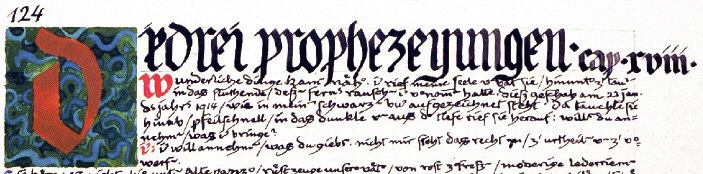 124
Die drei prophezeyungen. cap. xviii.
Wunderliche dinge kam' näh'. i' rief meine seele u' bat sie / hinunt' z' tau-
in das fluthende, deß' fern's rausch' i' vernom' hatte. dieß geschah am 22 jan.
ds jahrs 1914 / wie in mein' schwarz' bu' aufgezeichnet steht. Da tauchte sie
hinab / pfeilschnell / in das dunkle u' aus d' tiefe rief sie herauf: willst du an-
nehm' / was i' bringe?
I: i' will annehm' / was du giebst. nicht mir steht das recht zu / z' urtheil' u' z' ver-
werf'.
alte panzer / rüstzeuge unserer vät' / von rost z'fress' / moderige lederriem'